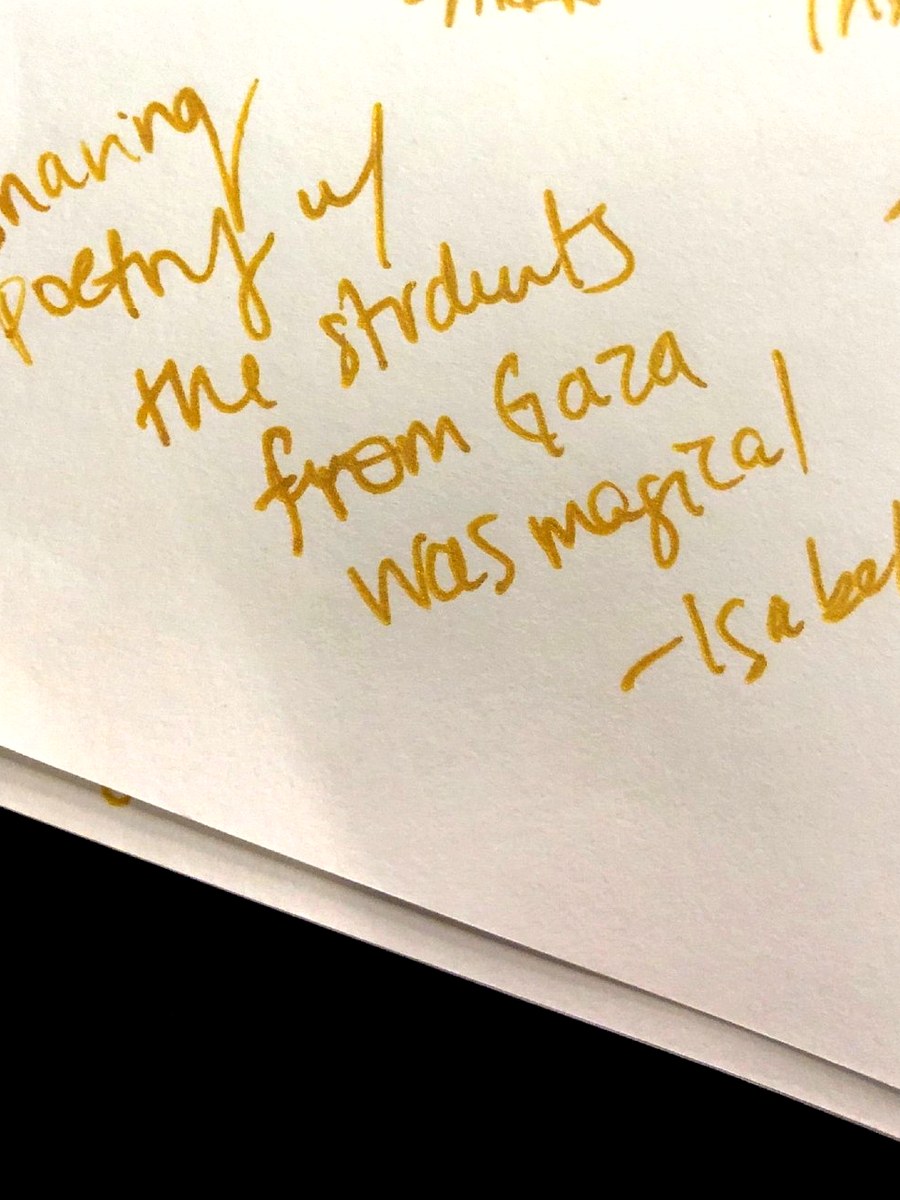 sharing
poetry w/
the students
from Gaza
was magical
-Isabel